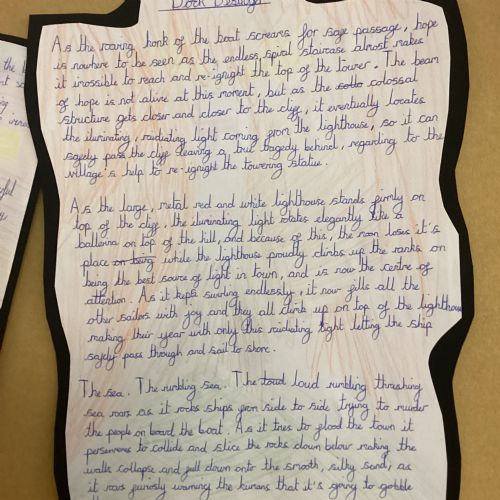 As the roaring honk of the boat screams for safe passage, hope
is nowhere to be seen as the endless, spiral staircase almost makes
it imossible to reach and re-ignight the top of the tower. The beam
of hope is not alive at this moment, but as the colossal
structure gets closer and closer to the cliff, it eventually locates
the iluminating, raidiating light coming from the lighthouse, so it can
safely pass the cliff leaving a true tragedy behind, regarding to the
village's help to re-ignight the towering statue.
As the large, metal red and white lighthouse stands firmly on
top of the cliff, the iluminating light rotates elegantly like a
ballerina on top of the hill, and because of this, the moon loses it's
place while the lighthouse proudly climbs up the ranks on
being the best source of light in town, and is now the centre of
attention. As it keps swirling endlessly, it now fills all the
other sailors with joy and they all climb up on top of the lighthouse
making their year with only this raidiating light letting the ship
safely pass through and sail to shore.
The sea. The rumbling sea. The loud rumbling thrashing
sea roars as it rocks ships from side to side trying to murder
the people on board the boat. As it tries to flood the town it
perseveres to collide and slice the rocks down below making the
walls collapse and fall down onto the smooth, silky sand, as
it roars furiosly warning the humans that it's going to gobble